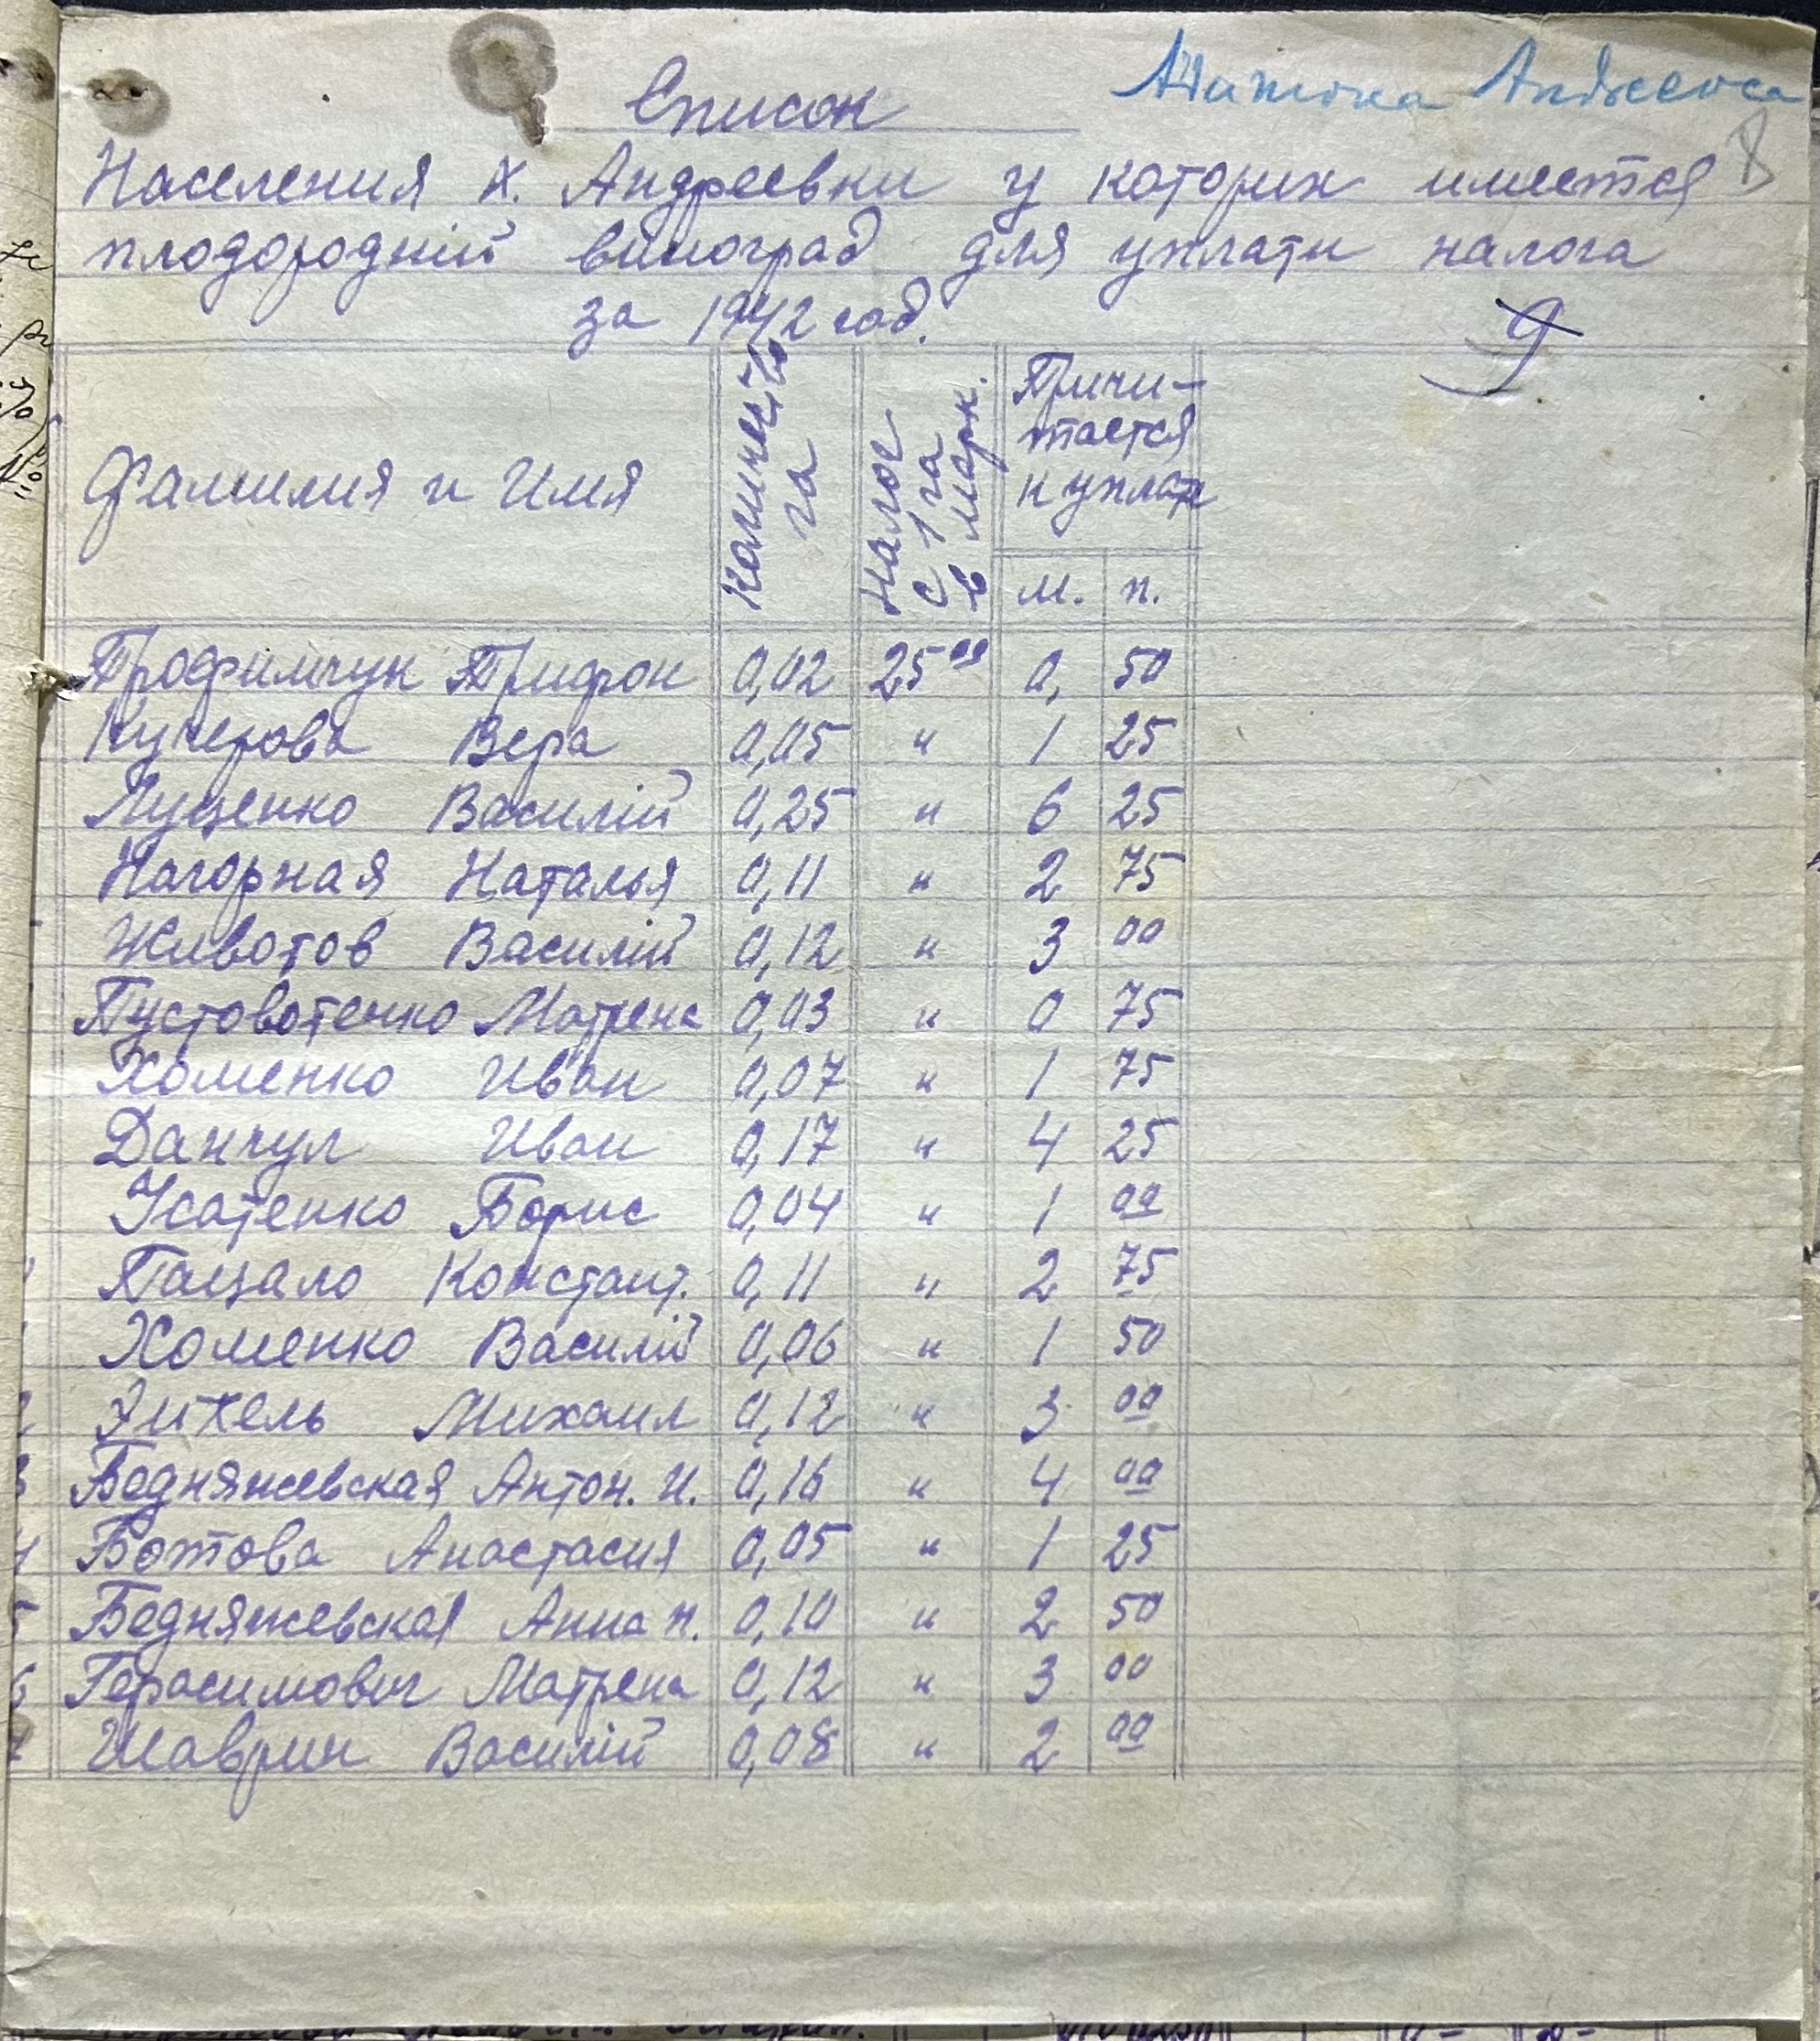 Список
Населения х. Андреевки у которих имеется
8
плодородній виноград для уплати налога
за 1942 год.
9
Фамилия и Имя
Количество
га
Налог
с 1 га
в марк.
Причи-
тается
к уплате
м. п.
Трофимчук Трифон 0,02 25 00 0, 50
Кучерова Вера 0,05 " 1 25
Луценко Василій 0,25 " 6 25
Нагорная Наталья 0,11 " 2 75
Животов Василій 0,12 " 3 00
Пустовотенко Матрена 0,03 " 0 75
Хоменко Иван 0,07 " 1 75
Данчул Иван 0,17 " 4 25
Усатенко Борис 0,04 " 1 00
Пацало Констант. 0,11 " 2 75
Хоменко Василій 0,06 " 1 50
Михаил 0,12 " 3 00
3 Бедняжевская Антон. И. 0,16 " 4 00
4 Ботова Анастасия 0,05 " 1 25
5 Бедняжевская Анна Н. 0,10 " 2 50
6 Герасимович Матрена 0,12 " 3 00
7 Шаврин Василій 0,08 " 2 00